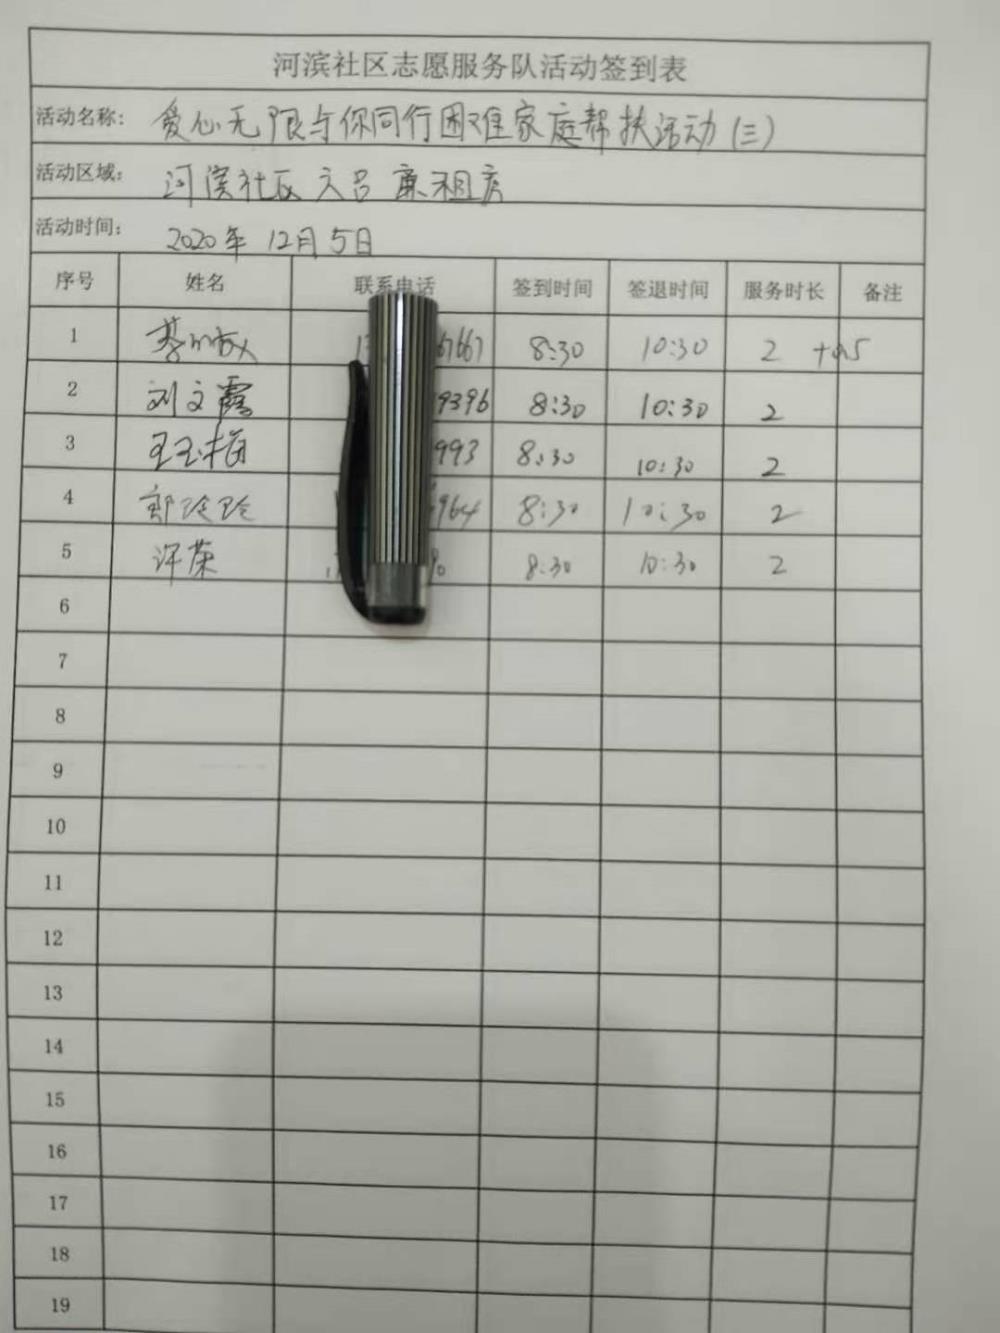 河滨社区志愿服务队活动签到表
活动名称: 爱心无限与你同行困难家庭帮扶活动(三)
活动区域: 河滨社区六吕廉租房
活动时间: 2020年12月5日
序号 姓名 联系电话 签到时间 签退时间 服务时长 备注
1 667 8:30 10:30 2 +0.5
2 刘文霞 9396 8:30 10:30 2
3 王玉梅 993 8:30 10:30 2
4 郭玲玲 964 8:30 10:30 2
5 许荣 8:30 10:30 2
6
7
8
9
10
11
12
13
14
15
16
17
18
19